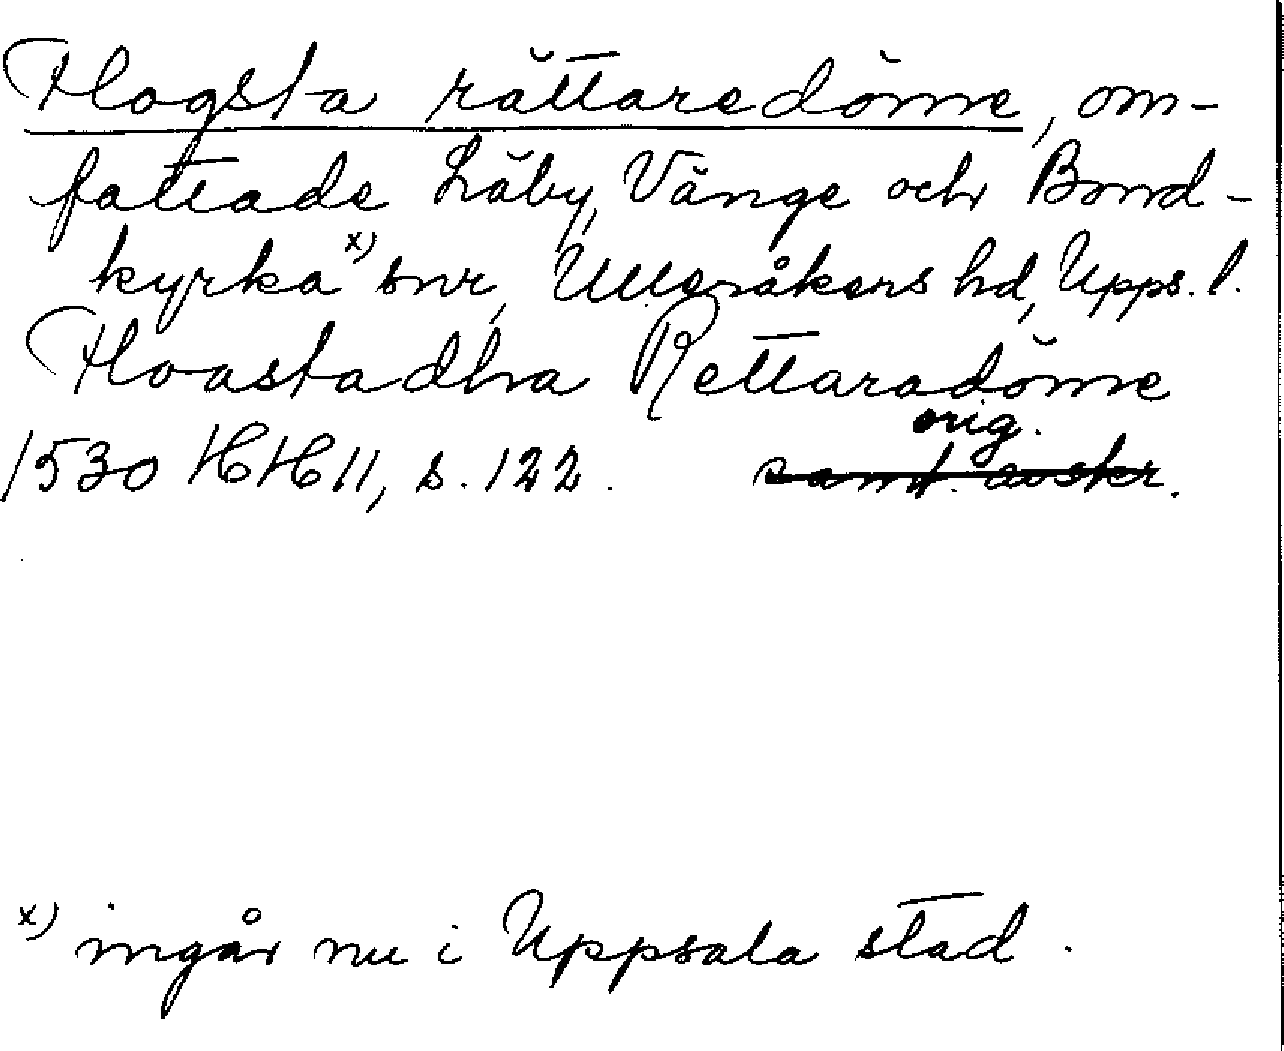 Hogsta rättaredöme, om-
fattade Läby, Vänge och Bond-
kyrka x) snr, Ulleråkers hd, Upps. l.
Hoastadha Rettaradöme
orig.
1530 HH 11, s. 122. samt. avskr.
x) ingår nu i Uppsala stad.